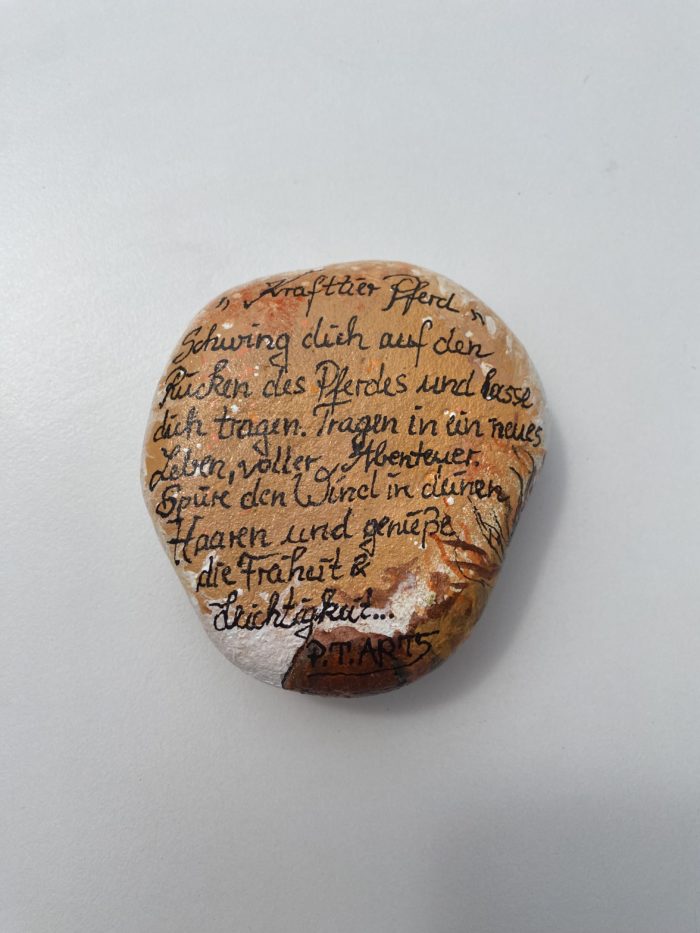 „Krafttier Pferd"
Schwing dich auf den
Rücken des Pferdes und lasse
dich tragen. Tragen in ein neues
Leben, voller Abenteuer.
Spüre den Wind in deinen
Haaren und genieße
die Freiheit &
Leichtigkeit...
P.T.ARTS